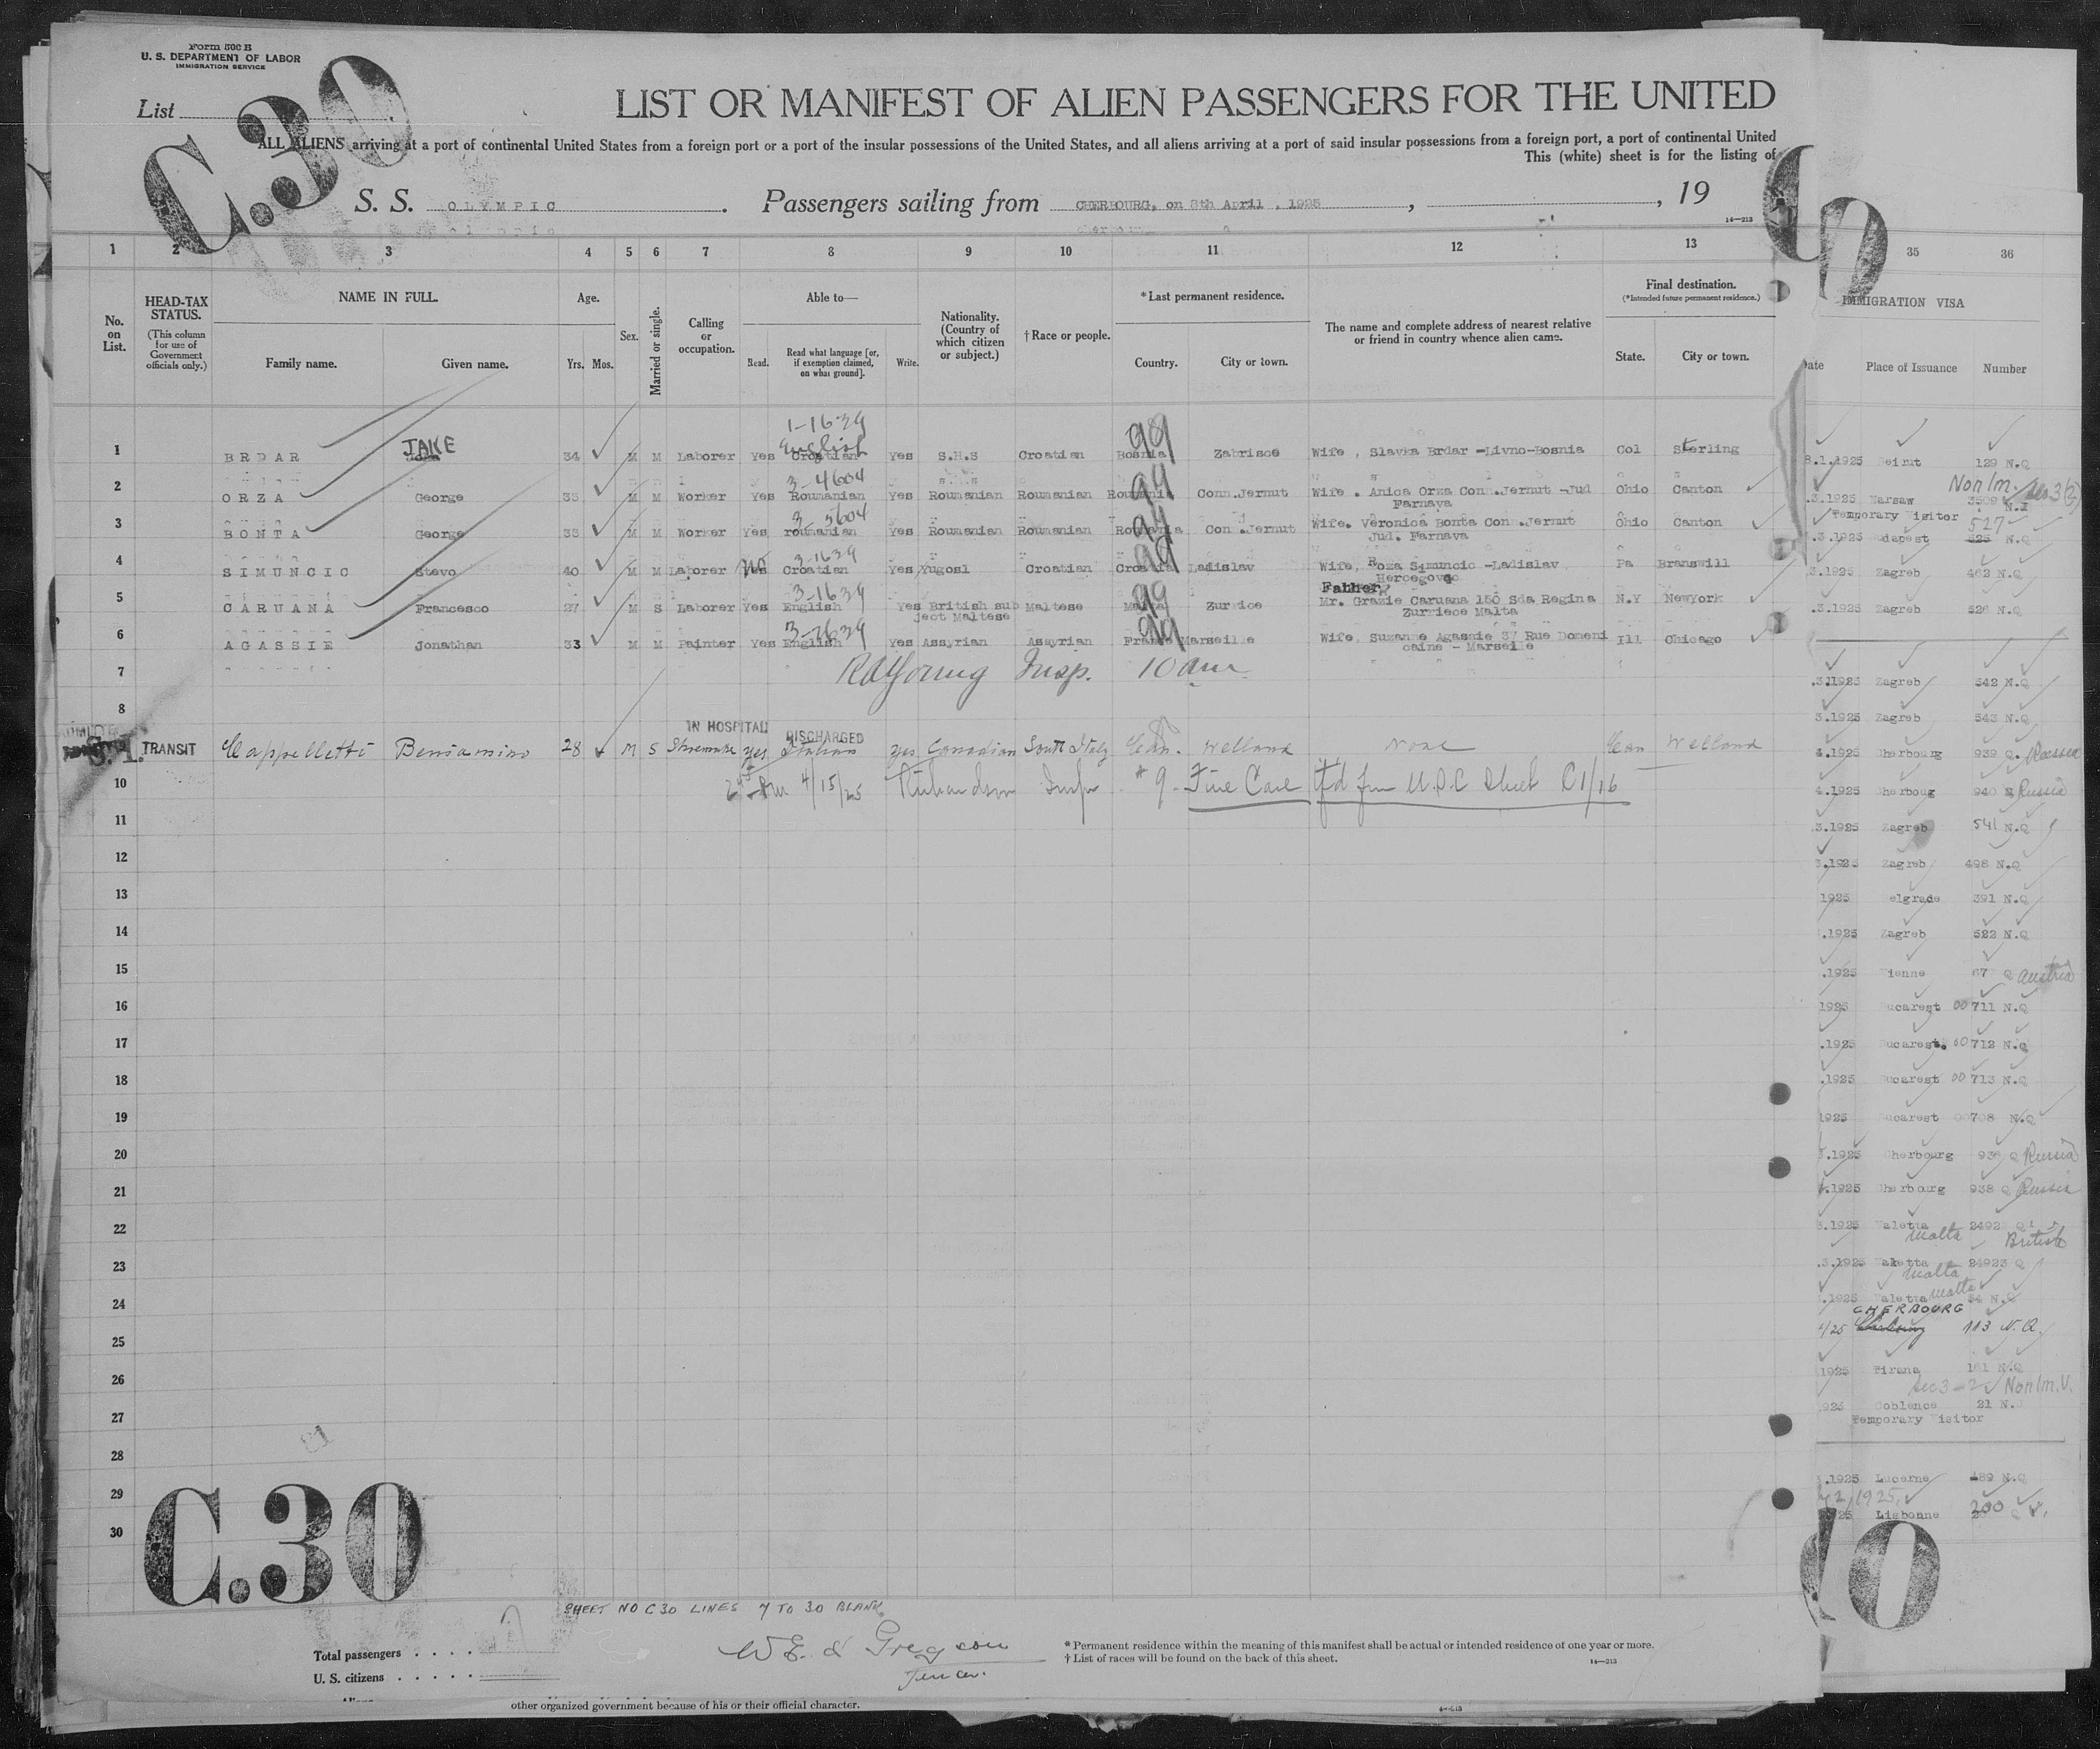 Form 500 B
U. S. DEPARTMENT OF LABOR
IMMIGRATION SERVICE
List
C.30
LIST OR MANIFEST OF ALIEN PASSENGERS FOR THE UNITED
ALL ALIENS arriving at a port of continental United States from a foreign port or a port of the insular possessions of the United States, and all aliens arriving at a port of said insular possessions from a foreign port, a port of continental United
This (white) sheet is for the listing of
S. S. OLYMPIC. Passengers sailing from CHERBOURG, on 8th April, 1925, , 19
14—213
1 2 3 4 5 6 7 8 9 10 11 12 13
No. on List.
HEAD-TAX STATUS.
(This column for use of Government officials only.)
NAME IN FULL.
Family name. Given name.
Age.
Yrs. Mos.
Sex.
Married or single.
Calling or occupation.
Able to—
Read. Read what language [or, if exemption claimed, on what ground]. Write.
Nationality. (Country of which citizen or subject.)
† Race or people.
* Last permanent residence.
Country. City or town.
The name and complete address of nearest relative or friend in country whence alien came.
Final destination.
(* Intended future permanent residence.)
State. City or town.
1-1639
English
1 BRDAR JAKE 34 M M Laborer Yes Croatian Yes S.H.S Croatian Bosnia 99 Zabrisce Wife, Slavka Brdar -Livno-Bosnia Col Sterling
3-4604
2 ORZA George 35 M M Worker Yes Roumanian Yes Roumanian Roumanian Roumania 99 Conn.Jernut Wife. Anica Orza Conn.Jernut -Jud Ohio Canton
Farnava
3-5604
3 BONTA George 33 M M Worker Yes roumanian Yes Roumanian Roumanian Roumania 99 Con .Jernut Wife. Veronica Bonta Con .Jernut Ohio Canton
Jud. Farnava
3-1639
4 SIMUNCIC Stevo 40 M M Laborer No Croatian Yes Yugosl Croatian Croatia 99 Ladislav Wife, Roza Simuncic -Ladislav Pa Branswill
Hercegovac
3-1639
Father
5 CARUANA Francesco 27 M S Laborer Yes English Yes British sub Maltese Malta 99 Zurrice Mr. Grazie Caruana 150 Sda Regina N.Y NewYork
ject Maltese Zurriece Malta
3-1639
6 AGASSIE Jonathan 33 M M Painter Yes English Yes Assyrian Assyrian France 99 Marseille Wife, Suzanne Agassie 37 Rue Domeni Ill Chicago
caine - Marseille
7 Young Insp. 10 am
8
IN HOSPITAL DISCHARGED
TRANSIT Cappelletti Beniamino 28 M S Shoemaker yes Italian yes Canadian South Italy Can. Welland None Can Welland
10 4/15/25 Richardson Insp #9 - Fine Case tfd from U.S.C Sheet C1/16
11
12
13
14
15
16
17
18
19
20
21
22
23
24
25
26
27
28
29
30
C.30
SHEET NO C30 LINES 7 TO 30 BLANK
Total passengers . . . .
U. S. citizens . . . . .
Gregson
* Permanent residence within the meaning of this manifest shall be actual or intended residence of one year or more.
† List of races will be found on the back of this sheet.
14—213
other organized government because of his or their official character.
35 36
IMMIGRATION VISA
Place of Issuance Number
8.1.1925 Beirut 129 N.Q
Non Im.
.3.1925 Warsaw 3509 N.I
Temporary Visitor 527
.3.1925 N.Q
3.1925 Zagreb 462 N.Q
.3.1925 Zagreb 526 N.Q
.3.1925 Zagreb 542 N.Q
3.1925 Zagreb 543 N.Q
4.1925 Cherbourg 939 Q. Russia
4.1925 940 Russia
3.1925 Zagreb 541 N.Q
3.1925 Zagreb 498 N.Q
1925 elgrade 391 N.Q
.1925 Zagreb 522 N.Q
.1925 ienne 67 Q Austria
1925 ucarest 00711 N.Q
.1925 ucarest. 00712 N.Q
.1925 ucarest 00713 N.Q
1925 ucarest 00708 N.Q
3.1925 Cherbourg 936 Q Russia
4.1925 Cherbourg 938 Q Russia
3.1925 Valetta 2492
Malta British
.3.1925 Valetta 24923 Q
Malta
.1925 Valetta Malta 54 N.Q
CHERBOURG
4/25 113 N.Q.
1925 Tirana 161 N.Q
Sec 3-2 Non Im. V.
925 Coblence 21 N.
Temporary Visitor
.1925 Lucerne 489 N.Q
1925
25 Lisbonne 200